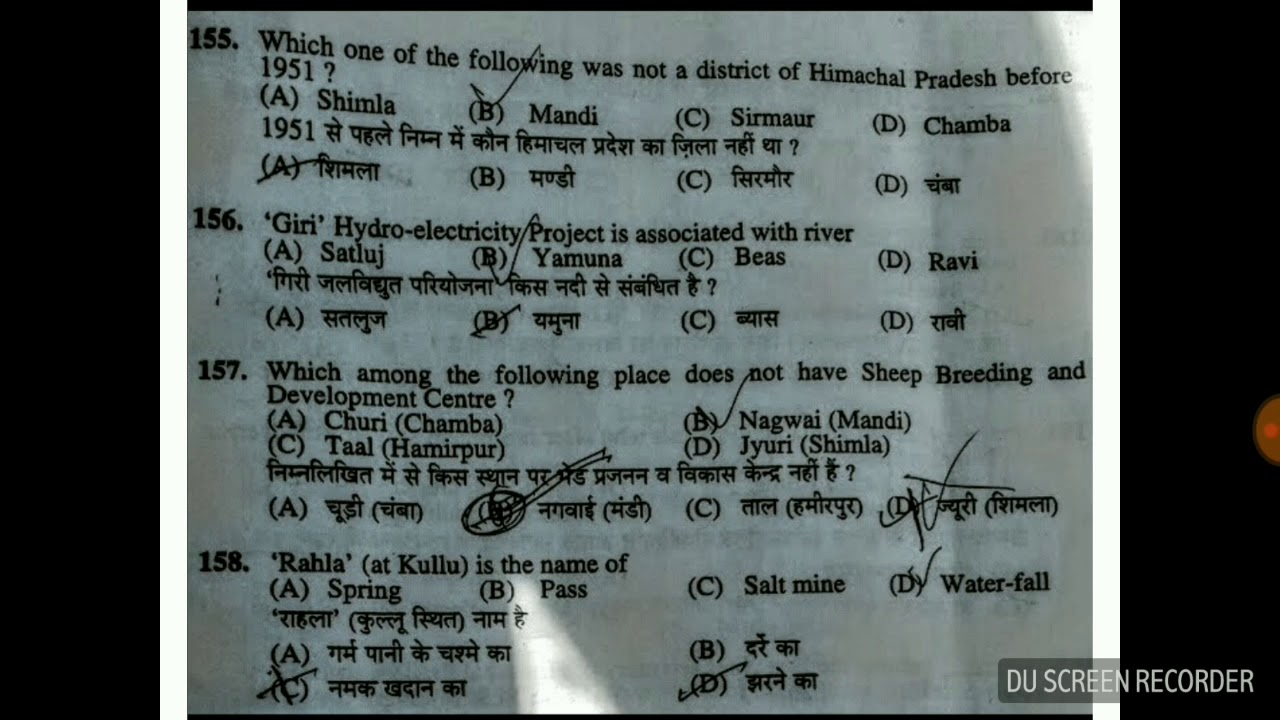 155. Which one of the following was not a district of Himachal Pradesh before
1951 ?
(A) Shimla (B) Mandi (C) Sirmaur (D) Chamba
1951 से पहले निम्न में कौन हिमाचल प्रदेश का ज़िला नहीं था ?
(A) शिमला (B) मण्डी (C) सिरमौर (D) चंबा
156. ‘Giri’ Hydro-electricity Project is associated with river
(A) Satluj (B) Yamuna (C) Beas (D) Ravi
‘गिरी जलविद्युत परियोजना किस नदी से संबंधित है ?
(A) सतलुज (B) यमुना (C) ब्यास (D) रावी
157. Which among the following place does not have Sheep Breeding and
Development Centre ?
(A) Churi (Chamba) (B) Nagwai (Mandi)
(C) Taal (Hamirpur) (D) Jyuri (Shimla)
निम्नलिखित में से किस स्थान पर भेड प्रजनन व विकास केन्द्र नहीं हैं ?
(A) चूड़ी (चंबा) (B) नगवाई (मंडी) (C) ताल (हमीरपुर) (D) ज्यूरी (शिमला)
158. ‘Rahla’ (at Kullu) is the name of
(A) Spring (B) Pass (C) Salt mine (D) Water-fall
‘राहला’ (कुल्लू स्थित) नाम है
(A) गर्म पानी के चश्मे का (B) दर्रे का
(C) नमक खदान का (D) झरने का
DU SCREEN RECORDER